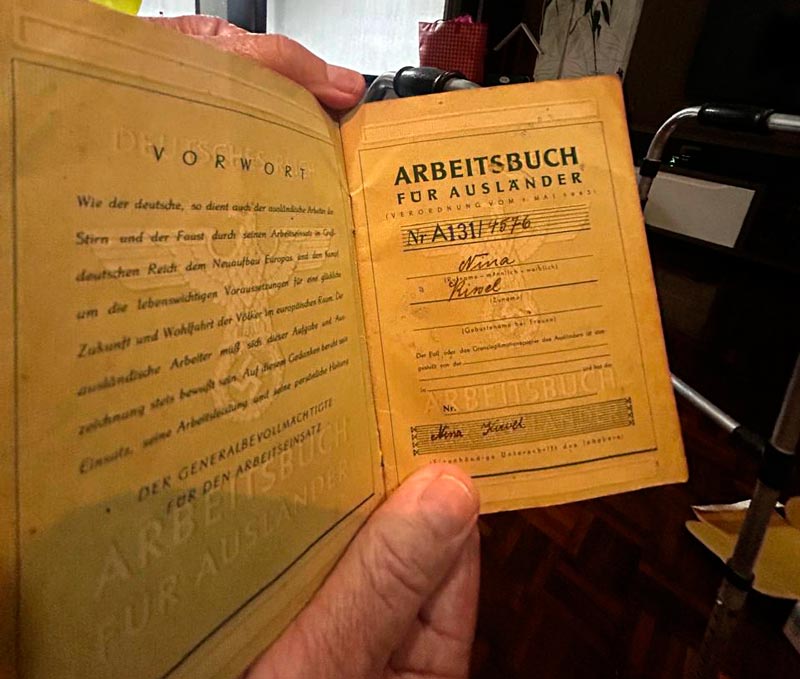 DEUTSCHES REICH
VORWORT
Wie der deutsche, so dient auch der ausländische Arbeiter der
Stirn und der Faust durch seinen Arbeitseinsatz im Groß-
deutschen Reich dem Neuaufbau Europas und dem Kampf
um die lebenswichtigen Voraussetzungen für eine glückliche
Zukunft und Wohlfahrt der Völker im europäischen Raum. Der
ausländische Arbeiter muß sich dieser Aufgabe und Aus-
zeichnung stets bewußt sein. Auf diesem Gedanken beruht sein
Einsatz, seine Arbeitsleistung und seine persönliche Haltung
DER GENERALBEVOLLMÄCHTIGTE
FÜR DEN ARBEITSEINSATZ
ARBEITSBUCH
FÜR AUSLÄNDER
ARBEITSBUCH
FÜR AUSLÄNDER
(VERORDNUNG VOM 1. MAI 1943)
Nr A131/4676
Nina
(Rufname - männlich - weiblich)
(Zuname)
(Geburtsname bei Frauen)
Der Paß oder das Grenzlegitimationspapier des Ausländers ist aus-
gestellt von der
in und hat die
Nr.
ARBEITSBUCH
Nina
(Eigenhändige Unterschrift des Inhabers)